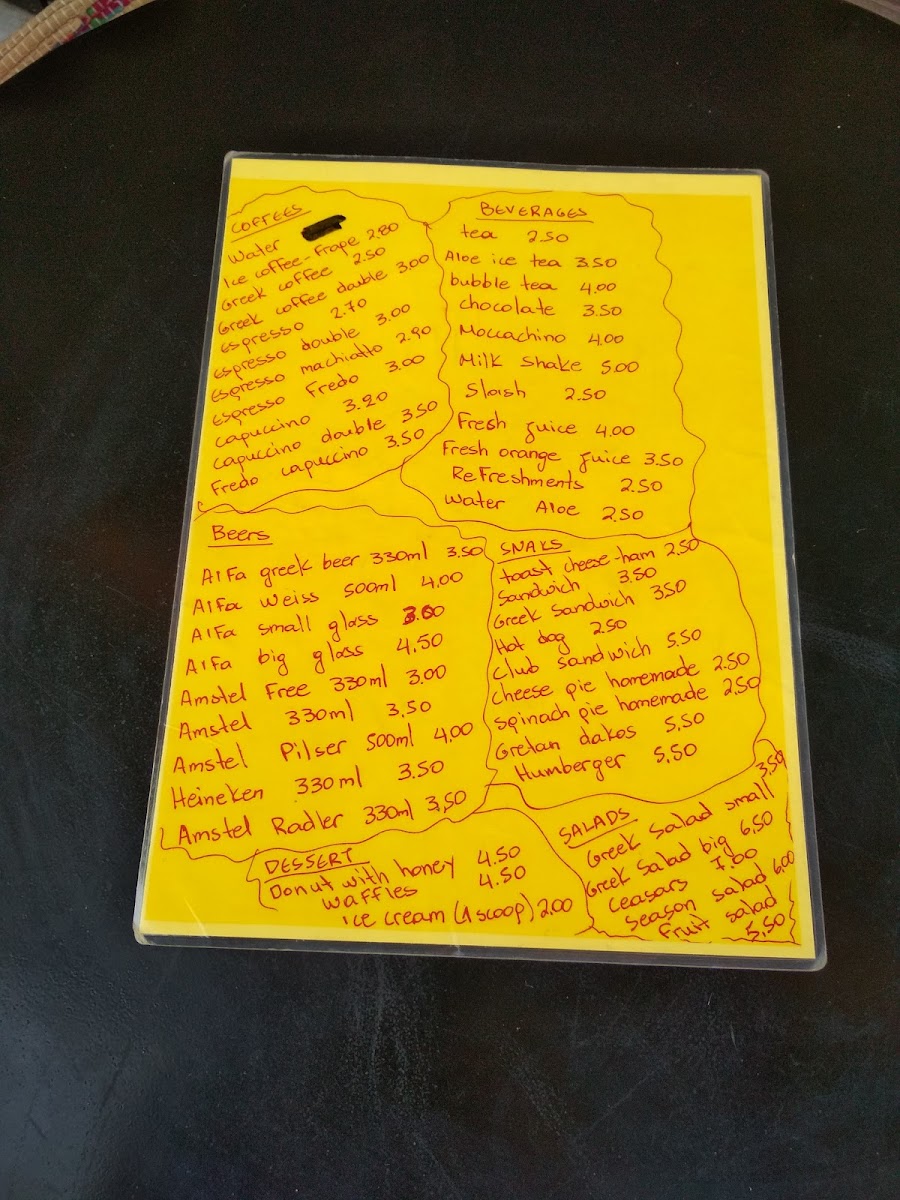 COFFEES
Water
Ice coffee-Frape 2.80
Greek coffee 2.50
Greek coffee double 3.00
Espresso 2.70
Espresso double 3.00
Espresso machiatto 2.90
Espresso Fredo 3.00
capuccino 3.20
capuccino double 3.50
Fredo capuccino 3.50
BEVERAGES
tea 2.50
Aloe ice tea 3.50
bubble tea 4.00
chocolate 3.50
Moccachino 4.00
Milk Shake 5.00
Sloish 2.50
Fresh juice 4.00
Fresh orange juice 3.50
ReFreshments 2.50
Water Aloe 2.50
Beers
AlFa greek beer 330ml 3.50
AlFa Weiss 500ml 4.00
AlFa small glass 3.00
AlFa big glass 4.50
Amstel Free 330ml 3.00
Amstel 330ml 3.50
Amstel Pilser 500ml 4.00
Heineken 330ml 3.50
Amstel Radler 330ml 3,50
SNAKS
toast cheese-ham 2.50
Sandwich 3.50
Greek Sandwich 3.50
Hot dog 2.50
Club Sandwich 5.50
Cheese pie homemade 2.50
Spinach pie homemade 2.50
Cretan dakos 5,50
Humberger 5,50
DESSERT
Donut with honey 4.50
Waffles 4.50
ice cream (1 scoop) 2.00
SALADS
Greek Salad small 3,50
Greek Salad big 6,50
Ceasars 7.00
Season salad 6,00
Fruit salad 5,50